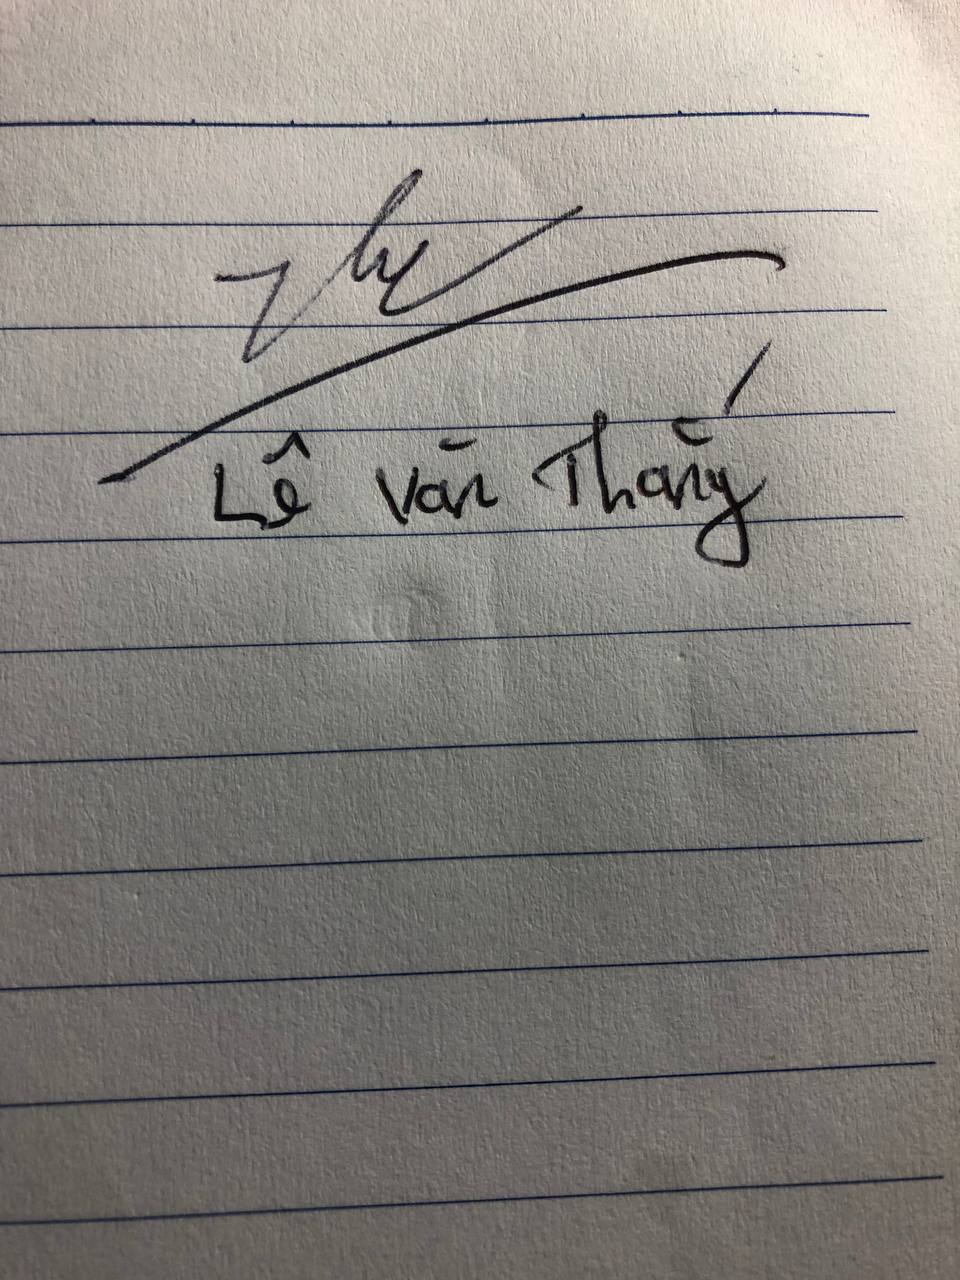 Lê Văn Thắng